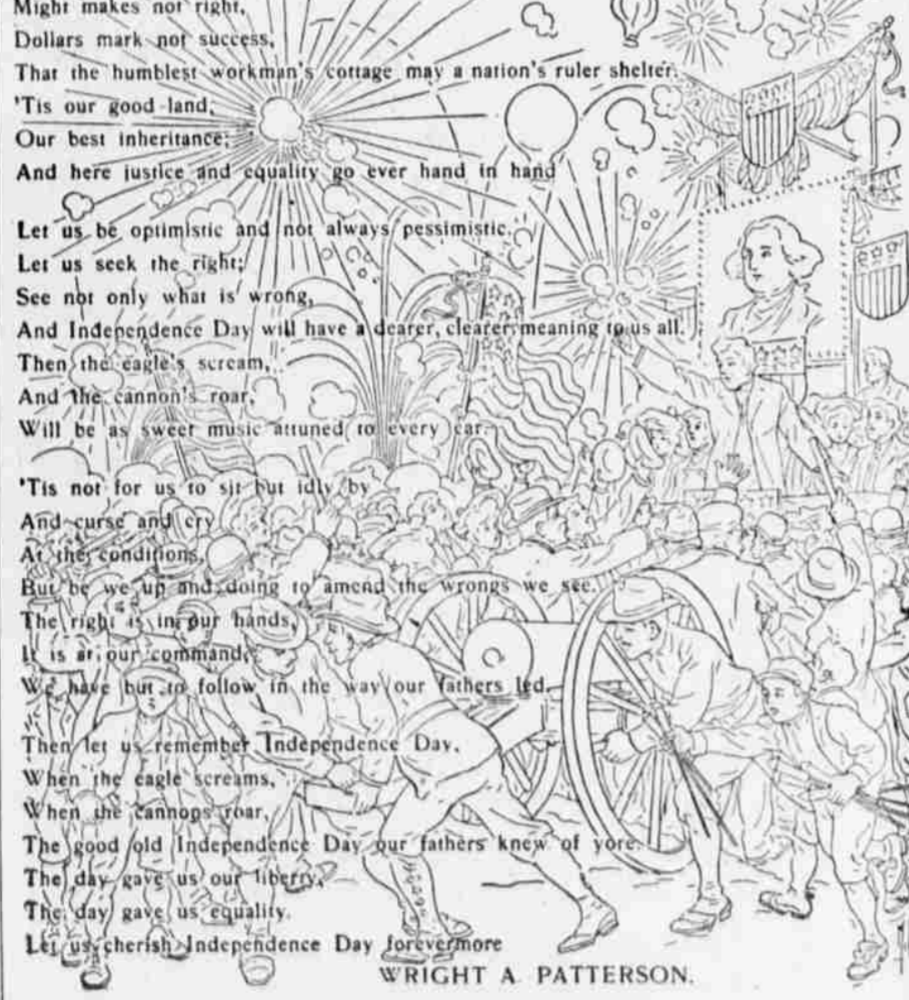 Might makes not right,
Dollars mark not success,
That the humblest workman's cottage may a nation's ruler shelter.
'Tis our good land;
Our best inheritance;
And here justice and equality go ever hand in hand
Let us be optimistic and not always pessimistic.
Let us seek the right;
See not only what is wrong,
And Independence Day will have a dearer, clearer meaning to us all.
Then the eagle's scream,
And the cannon's roar,
Will be as sweet music attuned to every ear.
'Tis not for us to sit but idly by
And curse and cry
At the conditions,
But be we up and doing to amend the wrongs we see.
The right is in our hands,
It is at our command,
We have but to follow in the way our fathers led.
Then let us remember Independence Day,
When the eagle screams,
When the cannons roar,
The good old Independence Day our fathers knew of yore.
The day gave us our liberty,
The day gave us equality.
Let us cherish Independence Day forevermore
WRIGHT A. PATTERSON.